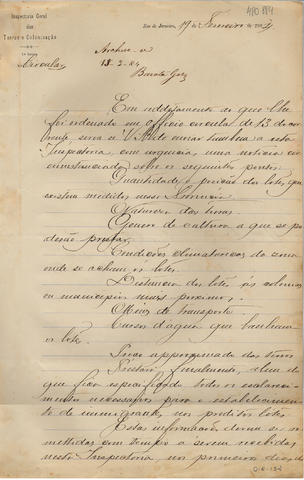 Inspectoria Geral
das
Terras e Colonisação
Circular
Rio de Janeiro, 19 de Fevereiro de 1884
Archive-se
18-2-84
Barata Góes
Em additamento ao que lhe
foi ordenado em officio circular de 13 do cor-
rente, sirva-se Vª de enviar tambem a esta
Inspectoria, com urgencia, uma noticia cir-
cumstanciada sobre os seguintes pontos:
Quantidade e posição dos lotes que
existem medidos nessa
Natureza das terras
Genero de cultura a que se po-
derão prestar
Condições climatericas da zona
onde se acham os lotes.
Distancia dos lotes ás colonias
ou municipios mais proximos.
Meios de transporte.
Cursos d'agua que banham
os lotes.
Preço approximado das terras
finalmente, alem do
que fica especificado todos os esclareci-
mentos necessarios para o estabelecimen-
to de immigrantes nos preditos lotes.
Estas informações devem ser re-
mettidas com tempo a serem recebidas
nesta Inspectoria, nos primeiros dias de